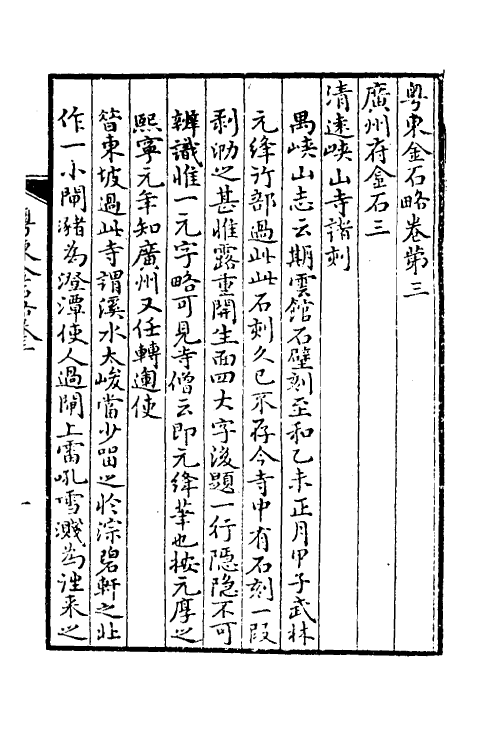 粤東金石略卷第三
廣州府金石三
清遠峽山寺諸刻
禺峽山志云期雲館石壁刻至和乙未正月甲子武林
元絳行部過此此石刻久已不存今寺中有石刻一段
剥泐之甚惟露重開生面四大字後題一行隱隱不可
辨識惟一元字略可見寺僧云即元絳筆也按元厚之
熙寧元年知廣州又任轉運使
昝東坡過此寺謂溪水太峻當少留之於淙碧軒之北
作一小閘瀦為澄潭使人過閘上雷吼雪濺為往来之
粤東金石略卷三
一